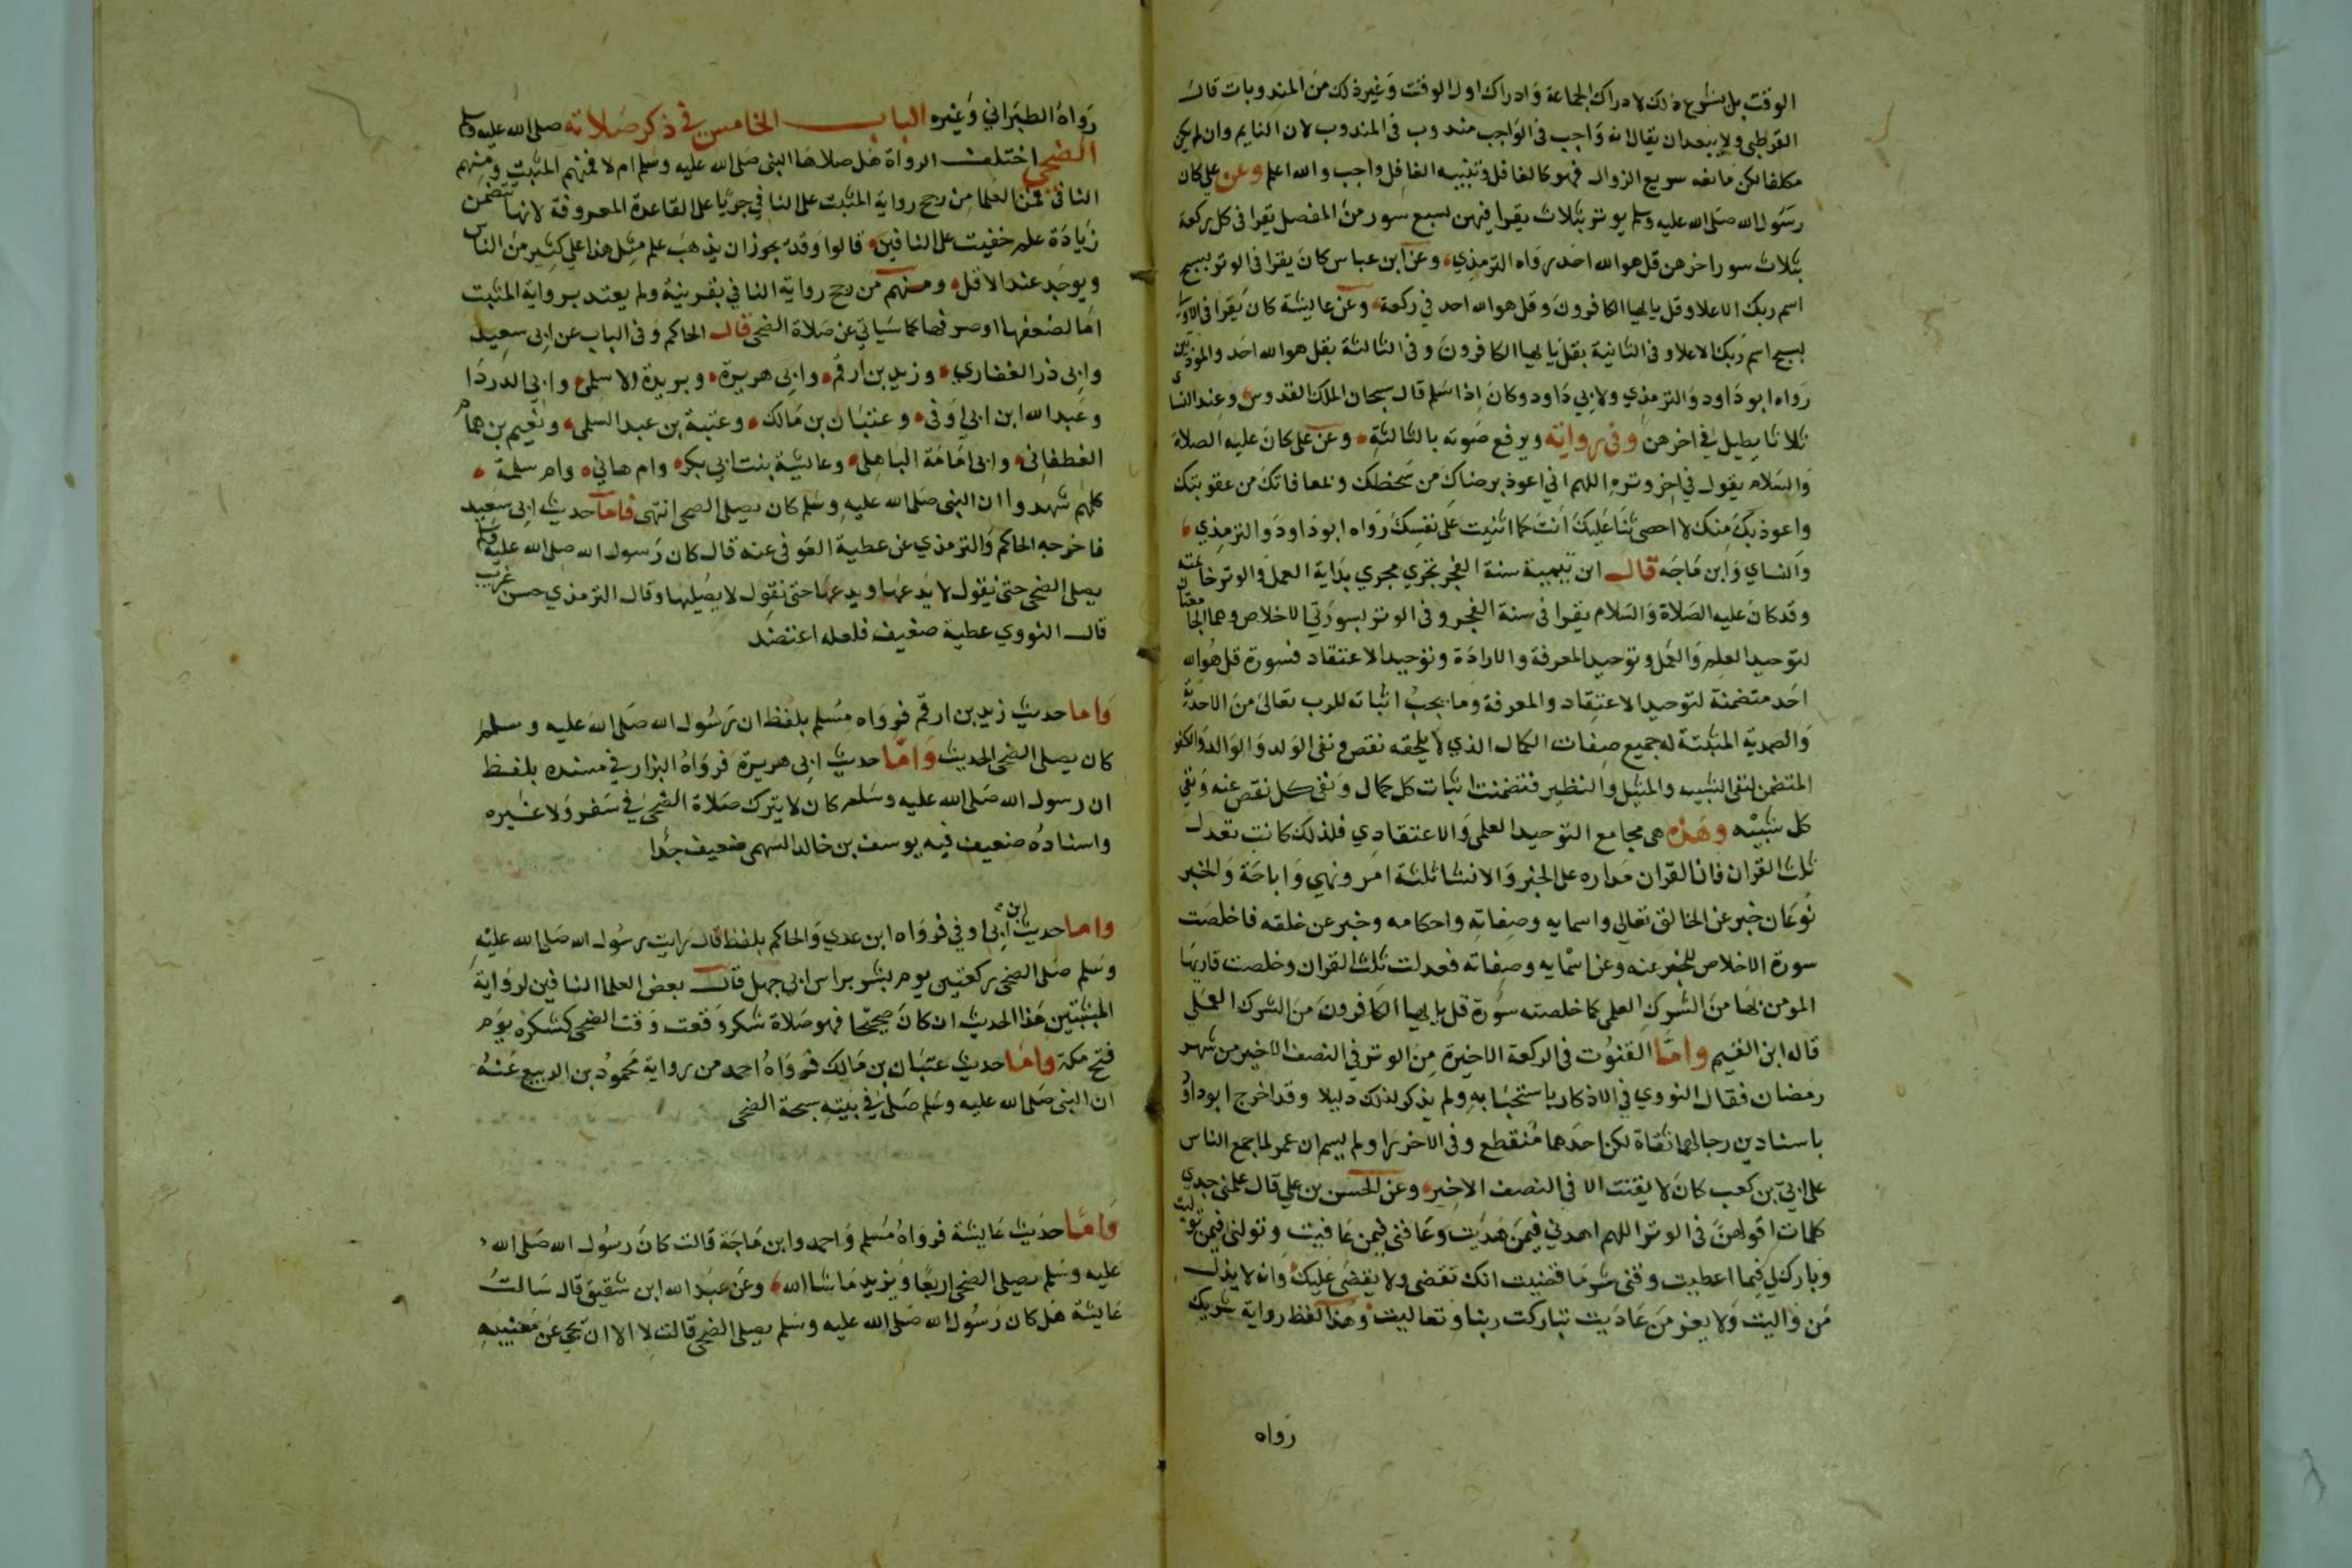 الوقت بل يشرع ذلك لادراك الجماعة وادراك اول الوقت وغير ذلك من المندوبات قال
القرطبي ولا يبعد ان يقال انه واجب في الواجب مندوب في المندوب لان النايم وان لم يكن
مكلفا لكن مانعه سريع الزوال فهو كالغافل وتنبيه الغافل واجب والله اعلم وعن علي كان
رسول الله صلى الله عليه وسلم يوتر بثلاث يقرا فيهن بسبع سور من المفصل يقرا في كل ركعة
بثلاث سور اخرهن قل هو الله احد رواه الترمذي وعن ابن عباس كان يقرا في الوتر بسبح
اسم ربك الاعلا وقل يا ايها الكافرون وقل هو الله احد في ركعة وعن عايشة كان يقرا في الاولى
بسبح اسم ربك الاعلا وفي الثانية بقل يا ايها الكافرون وفي الثالثة بقل هو الله احد والمعوذتين
رواه ابو داود والترمذي ولابي داود وكان اذا سلم قال سبحان الملك القدوس وعند النسائ
ثلاثا يطيل في اخرهن وفي رواية ويرفع صوته بالثالثة وعن علي كان عليه الصلاة
والسلام يقول في اخر وتره اللهم اني اعوذ برضاك من سخطك وبمعافاتك من عقوبتك
واعوذ بك منك لا احصي ثنا عليك انت كما اثنيت على نفسك رواه ابو داود والترمذي
والنساي وابن ماجه قال ابن تيمية سنة الفجر تجري مجري بداية العمل والوتر خاتمته
وقد كان عليه الصلاة والسلام يقرا في سنة الفجر وفي الوتر بسورتي الاخلاص وهما الجامعتان
لتوحيد العلم والعمل وتوحيد المعرفة والارادة وتوحيد الاعتقاد فسورة قل هو الله
احد متضمنة لتوحيد الاعتقاد والمعرفة وما يجب اثباته للرب تعالى من الاحدية
والصمدية المثبتة له جميع صفات الكمال الذي لا يلحقه نقص ونفي الولد والوالد والكفو
المتضمن لنفي الشبيه والمثيل والنظير فتضمنت اثبات كل كمال ونفي كل نقص عنه ونفي
كل شبيه وهذه هي مجامع التوحيد العلمي والاعتقادي فلذلك كانت تعدل
ثلث القران فان القران مداره على الخبر والانشا ثلثة امر ونهي واباحة والخبر
نوعان خبر عن الخالق تعالي واسمايه وصفاته واحكامه وخبر عن خلقه فاخلصت
سورة الاخلاص للخبر عنه وعن اسمايه وصفاته فعدلت ثلث القران وخلصت قاريها
المومن بها من الشرك العلمي كما خلصته سورة قل يا ايها الكافرون من الشرك العملي
قاله ابن القيم واما القنوت في الركعة الاخيرة من الوتر في النصف الاخير من شهر
رمضان فقال النووي في الاذكار باستحبابه ولم يذكر لذلك دليلا وقد اخرج ابو داود
باسنادين رجالهما ثقاة لكن احدهما منقطع وفي الاخر راو لم يسم ان عمر لما جمع الناس
على ابي بن كعب كان لا يقنت الا في النصف الاخير وعن الحسن بن علي قال علمني جدي
كلمات اقولهن في الوتر اللهم اهدني فيمن هديت وعافني فيمن عافيت وتولني فيمن توليت
وبارك لي فيما اعطيت وقني شر ما قضيت انك تقضي ولا يقضى عليك وانه لا يذل
من واليت ولا يعز من عاديت تباركت ربنا وتعاليت وهذا لفظ رواية شريك
رواه
رواه الطبراني وغيره الباب الخامس في ذكر صلاته صلى الله عليه وسلم
الضحي اختلف الرواة هل صلاها النبي صلى الله عليه وسلم ام لا فمنهم المثبت ومنهم
النافي فمن العلما من رجح رواية المثبت على النافي جريا على القاعدة المعروفة لانها تتضمن
زيادة علم خفيت على النافين قالوا وقد يجوز ان يذهب علم مثل هذا علي كثير من الناس
ويوجد عند الاقل ومنهم من رجح رواية النافي بقرينة ولم يعتد برواية المثبت
اما لضعفها او صرفها كما سياتي عن صلاة الضحى قال الحاكم وفي الباب عن ابي سعيد
وابي ذر الغفاري وزيد بن ارقم وابي هريرة وبريدة الاسلمي وابي الدردا
وعبد الله ابن ابي اوفى وعتبان بن مالك وعتبة بن عبد السلمي ونعيم بن همام
الغطفاني وابي امامة الباهلي وعايشة بنت ابي بكر وام هاني وام سلمة
كلهم شهدوا ان النبي صلى الله عليه وسلم كان يصلي الضحى انتهى فاما حديث ابي سعيد
فاخرجه الحاكم والترمذي عن عطية العوفي عنه قال كان رسول الله صلى الله عليه وسلم
يصلي الضحى حتى نقول لا يدعها ويدعها حتى نقول لا يصليها وقال الترمذي حسن غريب
قال النووي عطية ضعيف فلعله اعتضد
واما حديث زيد بن ارقم فرواه مسلم بلفظ ان رسول الله صلى الله عليه وسلم
كان يصلي الضحى الحديث واما حديث ابي هريرة فرواه البزار في مسنده بلفظ
ان رسول الله صلى الله عليه وسلم كان لا يترك صلاة الضحى في سفر ولا غيره
واسناده ضعيف فيه يوسف بن خالد السهمي ضعيف جدا
واما حديث ابن ابي اوفي فرواه ابن عدي والحاكم بلفظ قال رايت رسول الله صلى الله عليه
وسلم صلى الضحى ركعتين يوم بشر براس ابي جهل قال بعض العلما النافين لرواية
المثبتين هذا الحديث ان كان صحيحا فهو صلاة شكر وقعت وقت الضحى كشكره يوم
فتح مكة واما حديث عتبان بن مالك فرواه احمد من رواية محمود بن الربيع عنه
ان النبي صلى الله عليه وسلم صلى في بيته سبحة الضحى
واما حديث عايشة فرواه مسلم واحمد وابن ماجة قالت كان رسول الله صلى الله
عليه وسلم يصلي الضحى اربعا ويزيد ما شا الله وعن عبد الله ابن شقيق قال سالت
عايشة هل كان رسول الله صلى الله عليه وسلم يصلي الضحى قالت لا الا ان يجي من مغيبه